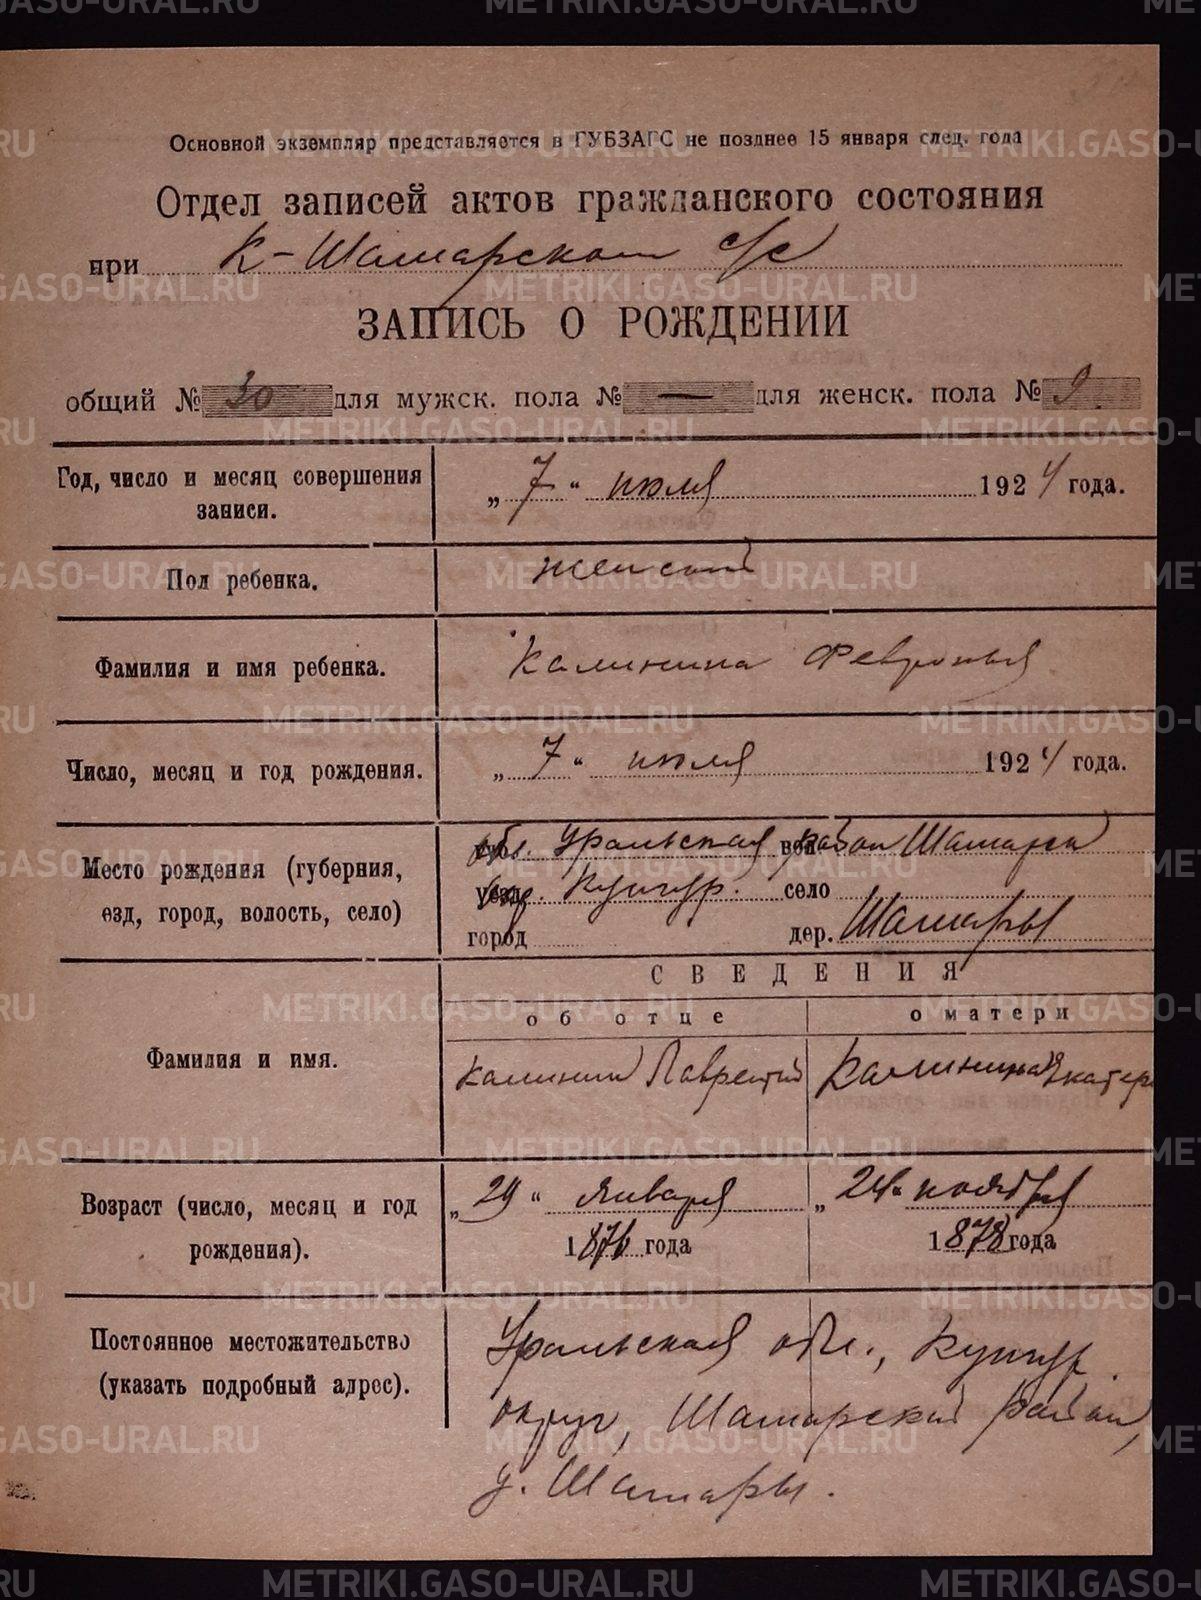 Основной экземпляр представляется в ГУБЗАГС не позднее 15 января след. года
Отдел записей актов гражданского состояния
при К-Шамарском с/с
ЗАПИСЬ О РОЖДЕНИИ
общий № 30 для мужск. пола № — для женск. пола № 9
Год, число и месяц совершения записи.
„7“ июля 1924 года.
Пол ребенка.
женский
Фамилия и имя ребенка.
Калинина Февронья
Число, месяц и год рождения.
„7“ июля 1924 года.
Место рождения (губерния,
езд, город, волость, село)
обл. Уральская район Шамарск
окр. Кунгур. село
город дер. Шамары
СВЕДЕНИЯ
об отце
о матери
Фамилия и имя.
Калинин Лаврентий
Калинина Екатер
Возраст (число, месяц и год
рождения).
„29“ января
1876 года
„24“ ноября
1878 года
Постоянное местожительство
(указать подробный адрес).
Уральская обл., Кунгур.
округ, Шамарский район,
д. Шамары.
METRIKI.GASO-URAL.RU